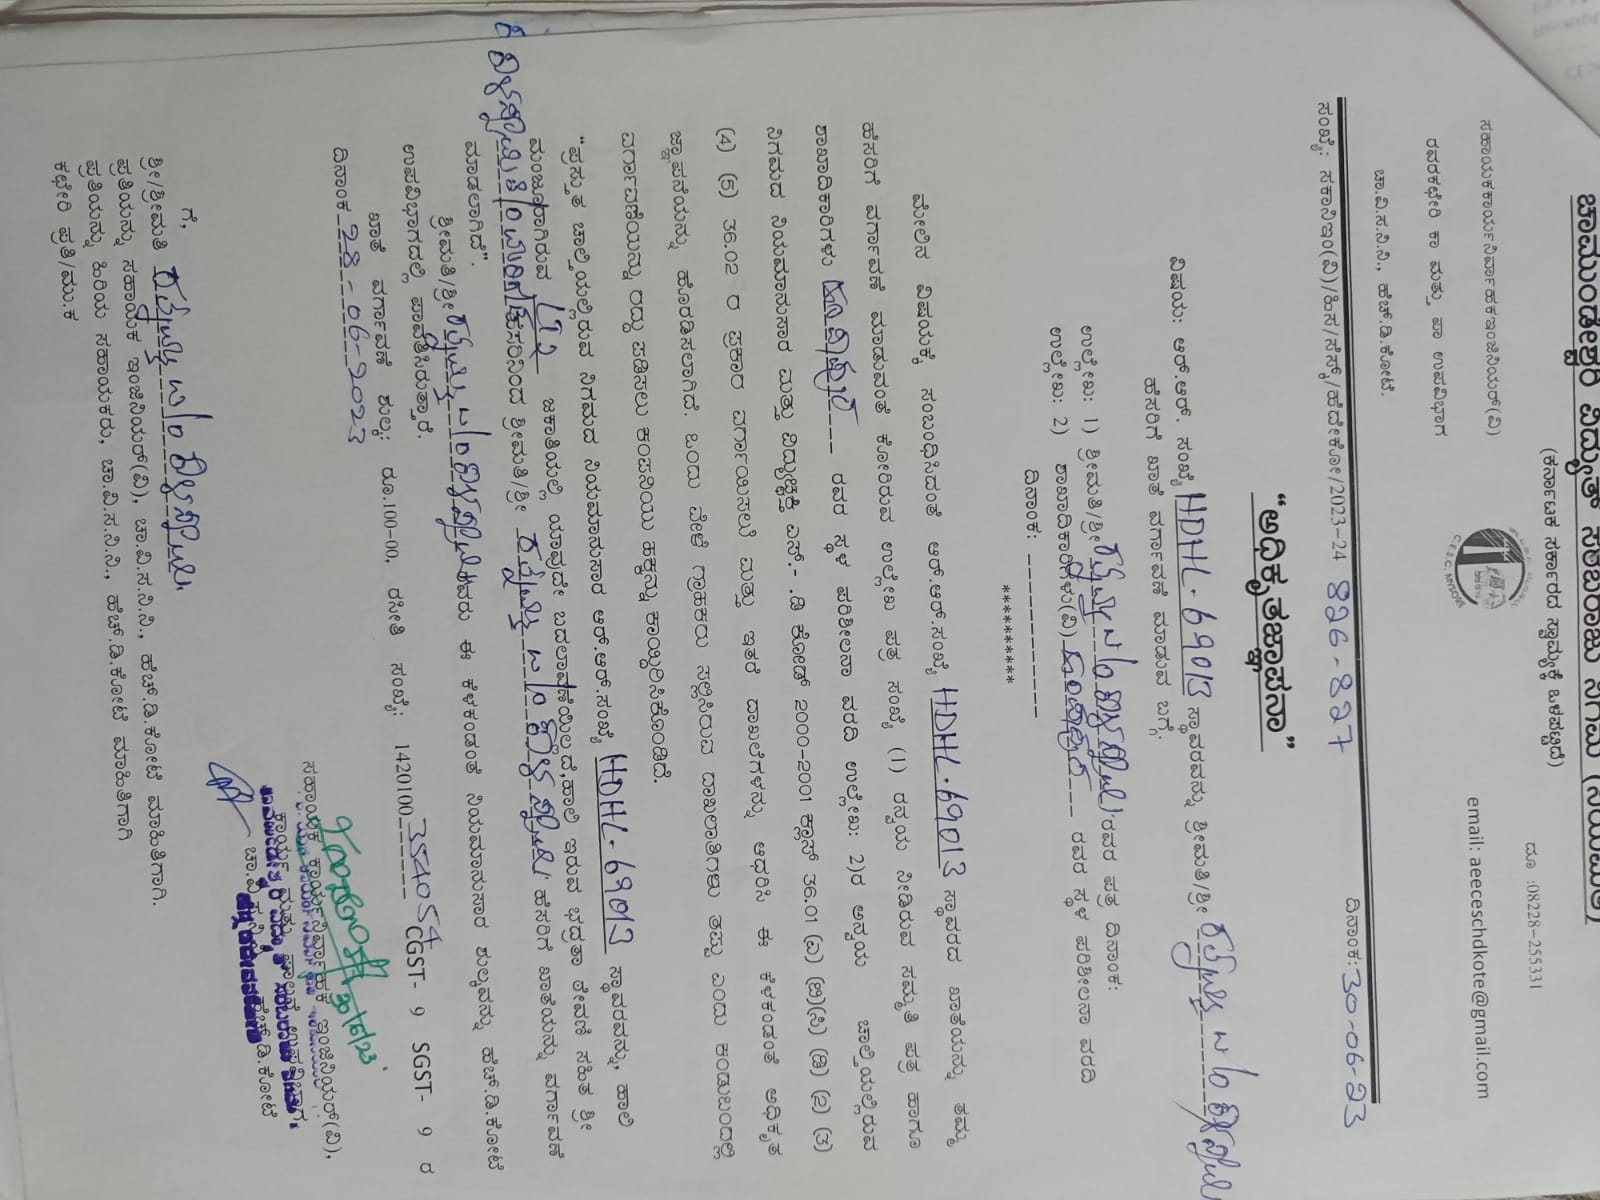 ಚಾಮುಂಡೇಶ್ವರಿ ವಿದ್ಯುತ್ ಸರಬರಾಜು ನಿಗಮ (ನಿಯಮಿತ)
(ಕರ್ನಾಟಕ ಸರ್ಕಾರದ ಸ್ವಾಮ್ಯಕ್ಕೆ ಒಳಪಟ್ಟಿದೆ)
ದೂ :08228-255331
ಸಹಾಯಕಕಾರ್ಯನಿರ್ವಾಹಕಇಂಜಿನಿಯರ್(ವಿ)
email: aeececschdkote@gmail.com
ರವರಕಛೇರಿ ಕಾ ಮತ್ತು ಪಾ ಉಪವಿಭಾಗ
C.E.S.C, MYSORE
ಚಾ.ವಿ.ಸ.ನಿ.ನಿ., ಹೆಚ್.ಡಿ.ಕೋಟೆ.
ಸಂಖ್ಯೆ: ಸಕಾನಿಇಂ(ವಿ)/ಹಿಸ/ಸೆಸ್ಕ್/ಹೆದೇಕೋ/2023-24 826-827 ದಿನಾಂಕ:30-06-23
“ಅಧಿಕೃತಜ್ಞಾಪನಾ”
ವಿಷಯ: ಆರ್.ಆರ್. ಸಂಖ್ಯೆ HDHL.69013 ಸ್ಥಾವರವನ್ನು ಶ್ರೀಮತಿ/ಶ್ರೀ
ಹೆಸರಿಗೆ ಖಾತೆ ವರ್ಗಾವಣೆ ಮಾಡುವ ಬಗ್ಗೆ.
ಉಲ್ಲೇಖ: 1) ಶ್ರೀಮತಿ/ಶ್ರೀ ರವರ ಪತ್ರ ದಿನಾಂಕ:
ಉಲ್ಲೇಖ: 2) ಶಾಖಾದಿಕಾರಿಗಳು(ವಿ) ರವರ ಸ್ಥಳ ಪರಿಶೀಲನಾ ವರದಿ
ದಿನಾಂಕ: ___________
**********
ಮೇಲಿನ ವಿಷಯಕ್ಕೆ ಸಂಬಂಧಿಸಿದಂತೆ ಆರ್.ಆರ್.ಸಂಖ್ಯೆ HDHL.69013 ಸ್ಥಾವರದ ಖಾತೆಯನ್ನು ತಮ್ಮ
ಹೆಸರಿಗೆ ವರ್ಗಾವಣೆ ಮಾಡುವಂತೆ ಕೋರಿರುವ ಉಲ್ಲೇಖ ಪತ್ರ ಸಂಖ್ಯೆ (1) ರನ್ವಯ ನೀಡಿರುವ ಸಮ್ಮತಿ ಪತ್ರ ಹಾಗೂ
ಶಾಖಾದಿಕಾರಿಗಳು ರವರ ಸ್ಥಳ ಪರಿಶೀಲನಾ ವರದಿ ಉಲ್ಲೇಖ: 2)ರ ಅನ್ವಯ ಚಾಲ್ತಿಯಲ್ಲಿರುವ
ನಿಗಮದ ನಿಯಮಾನುಸಾರ ಮತ್ತು ವಿದ್ಯುಚ್ಛಕ್ತಿ ಎಸ್.- .ಡಿ ಕೋಡ್ 2000-2001 ಕ್ಲಾಸ್ 36.01 (ಎ) (ಬಿ)(ಸಿ) (ಡಿ) (2) (3)
(4) (5) 36.02 ರ ಪ್ರಕಾರ ವರ್ಗಾಯಿಸಲಿ ಮತ್ತು ಇತರೆ ದಾಖಲೆಗಳನ್ನು ಆಧರಿಸಿ ಈ ಕೆಳಕಂಡಂತೆ ಅಧಿಕೃತ
ಜ್ಞಾಪನೆಯನ್ನು ಹೊರಡಿಸಲಾಗಿದೆ. ಒಂದು ವೇಳೆ ಗ್ರಾಹಕರು ಸಲ್ಲಿಸಿರುವ ದಾಖಲಾತಿಗಳು ತಪ್ಪು ಎಂದು ಕಂಡುಬಂದಲ್ಲಿ
ವರ್ಗಾವಣೆಯನ್ನು ರದ್ದು ಪಡಿಸಲು ಕಂಪನಿಯು ಹಕ್ಕನ್ನು ಕಾಯ್ದಿರಿಸಿಕೊಂಡಿದೆ.
“ಪ್ರಸ್ತುತ ಚಾಲ್ತಿಯಲ್ಲಿರುವ ನಿಗಮದ ನಿಯಮಾನುಸಾರ ಆರ್.ಆರ್.ಸಂಖ್ಯೆ HDHL.69013 ಸ್ಥಾವರವನ್ನು, ಹಾಲಿ
ಮಂಜೂರಾಗಿರುವ ಜಕಾತಿಯಲ್ಲಿ ಯಾವುದೇ ಬದಲಾವಣೆಯಿಲ್ಲದೆ,ಹಾಲಿ ಇರುವ ಭದ್ರತಾ ಠೇವಣಿ ಸಹಿತ ಶ್ರೀ
ಹೆಸರಿನಿಂದ ಶ್ರೀಮತಿ/ಶ್ರೀ ಹೆಸರಿಗೆ ಖಾತೆಯನ್ನು ವರ್ಗಾವಣೆ
ಮಾಡಲಾಗಿದೆ”.
ಶ್ರೀಮತಿ/ಶ್ರೀ ರವರು ಈ ಕೆಳಕಂಡಂತೆ ನಿಯಮಾನುಸಾರ ಶುಲ್ಕವನ್ನು ಹೆಚ್.ಡಿ.ಕೋಟೆ
ಉಪವಿಭಾಗದಲ್ಲಿ ಪಾವತಿಸಿರುತ್ತಾರೆ.
ಖಾತೆ ವರ್ಗಾವಣೆ ಶುಲ್ಕ: ರೂ.100-00, ರಸೀತಿ ಸಂಖ್ಯೆ: 1420100 354054 CGST- 9 SGST- 9 ರ
ದಿನಾಂಕ 28-06-2023
ಸಹಾಯಕ ಕಾರ್ಯನಿರ್ವಾಹಕ ಇಂಜಿನಿಯರ್(ವಿ),
ಕಾರ್ಯ ಮತ್ತು ಪಾಲನೆ ಉಪವಿಭಾಗ,
ಚಾ.ವಿ.ಸ.ನಿ.ನಿ., ಹೆಚ್.ಡಿ.ಕೋಟೆ
ಗೆ,
ಶ್ರೀ/ಶ್ರೀಮತಿ
ಪ್ರತಿಯನ್ನು ಸಹಾಯಕ ಇಂಜಿನಿಯರ್(ವಿ), ಚಾ.ವಿ.ಸ.ನಿ.ನಿ., ಹೆಚ್.ಡಿ.ಕೋಟೆ ಮಾಹಿತಿಗಾಗಿ.
ಪ್ರತಿಯನ್ನು ಹಿರಿಯ ಸಹಾಯಕರು, ಚಾ.ವಿ.ಸ.ನಿ.ನಿ., ಹೆಚ್.ಡಿ.ಕೋಟೆ ಮಾಹಿತಿಗಾಗಿ
ಕಛೇರಿ ಪ್ರತಿ/ಮು.ಕ